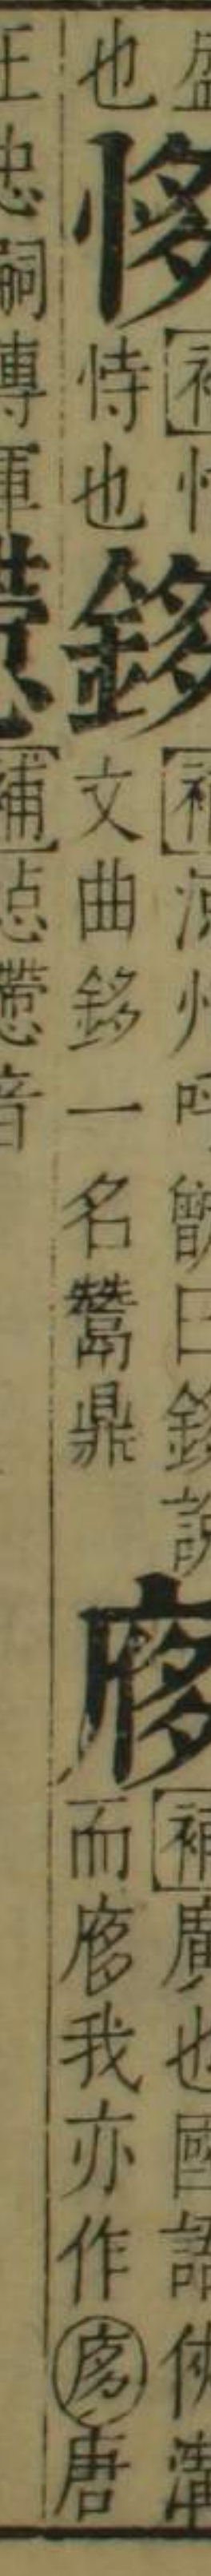 盛
也
恀
補怙
恃也
鉹
補涼州呼甑曰鉹說
文曲鉹一名鬵鼎
㢋
補廣也國語俠溝
而㢋我亦作唐
王忠嗣傳軍
補惉懘音